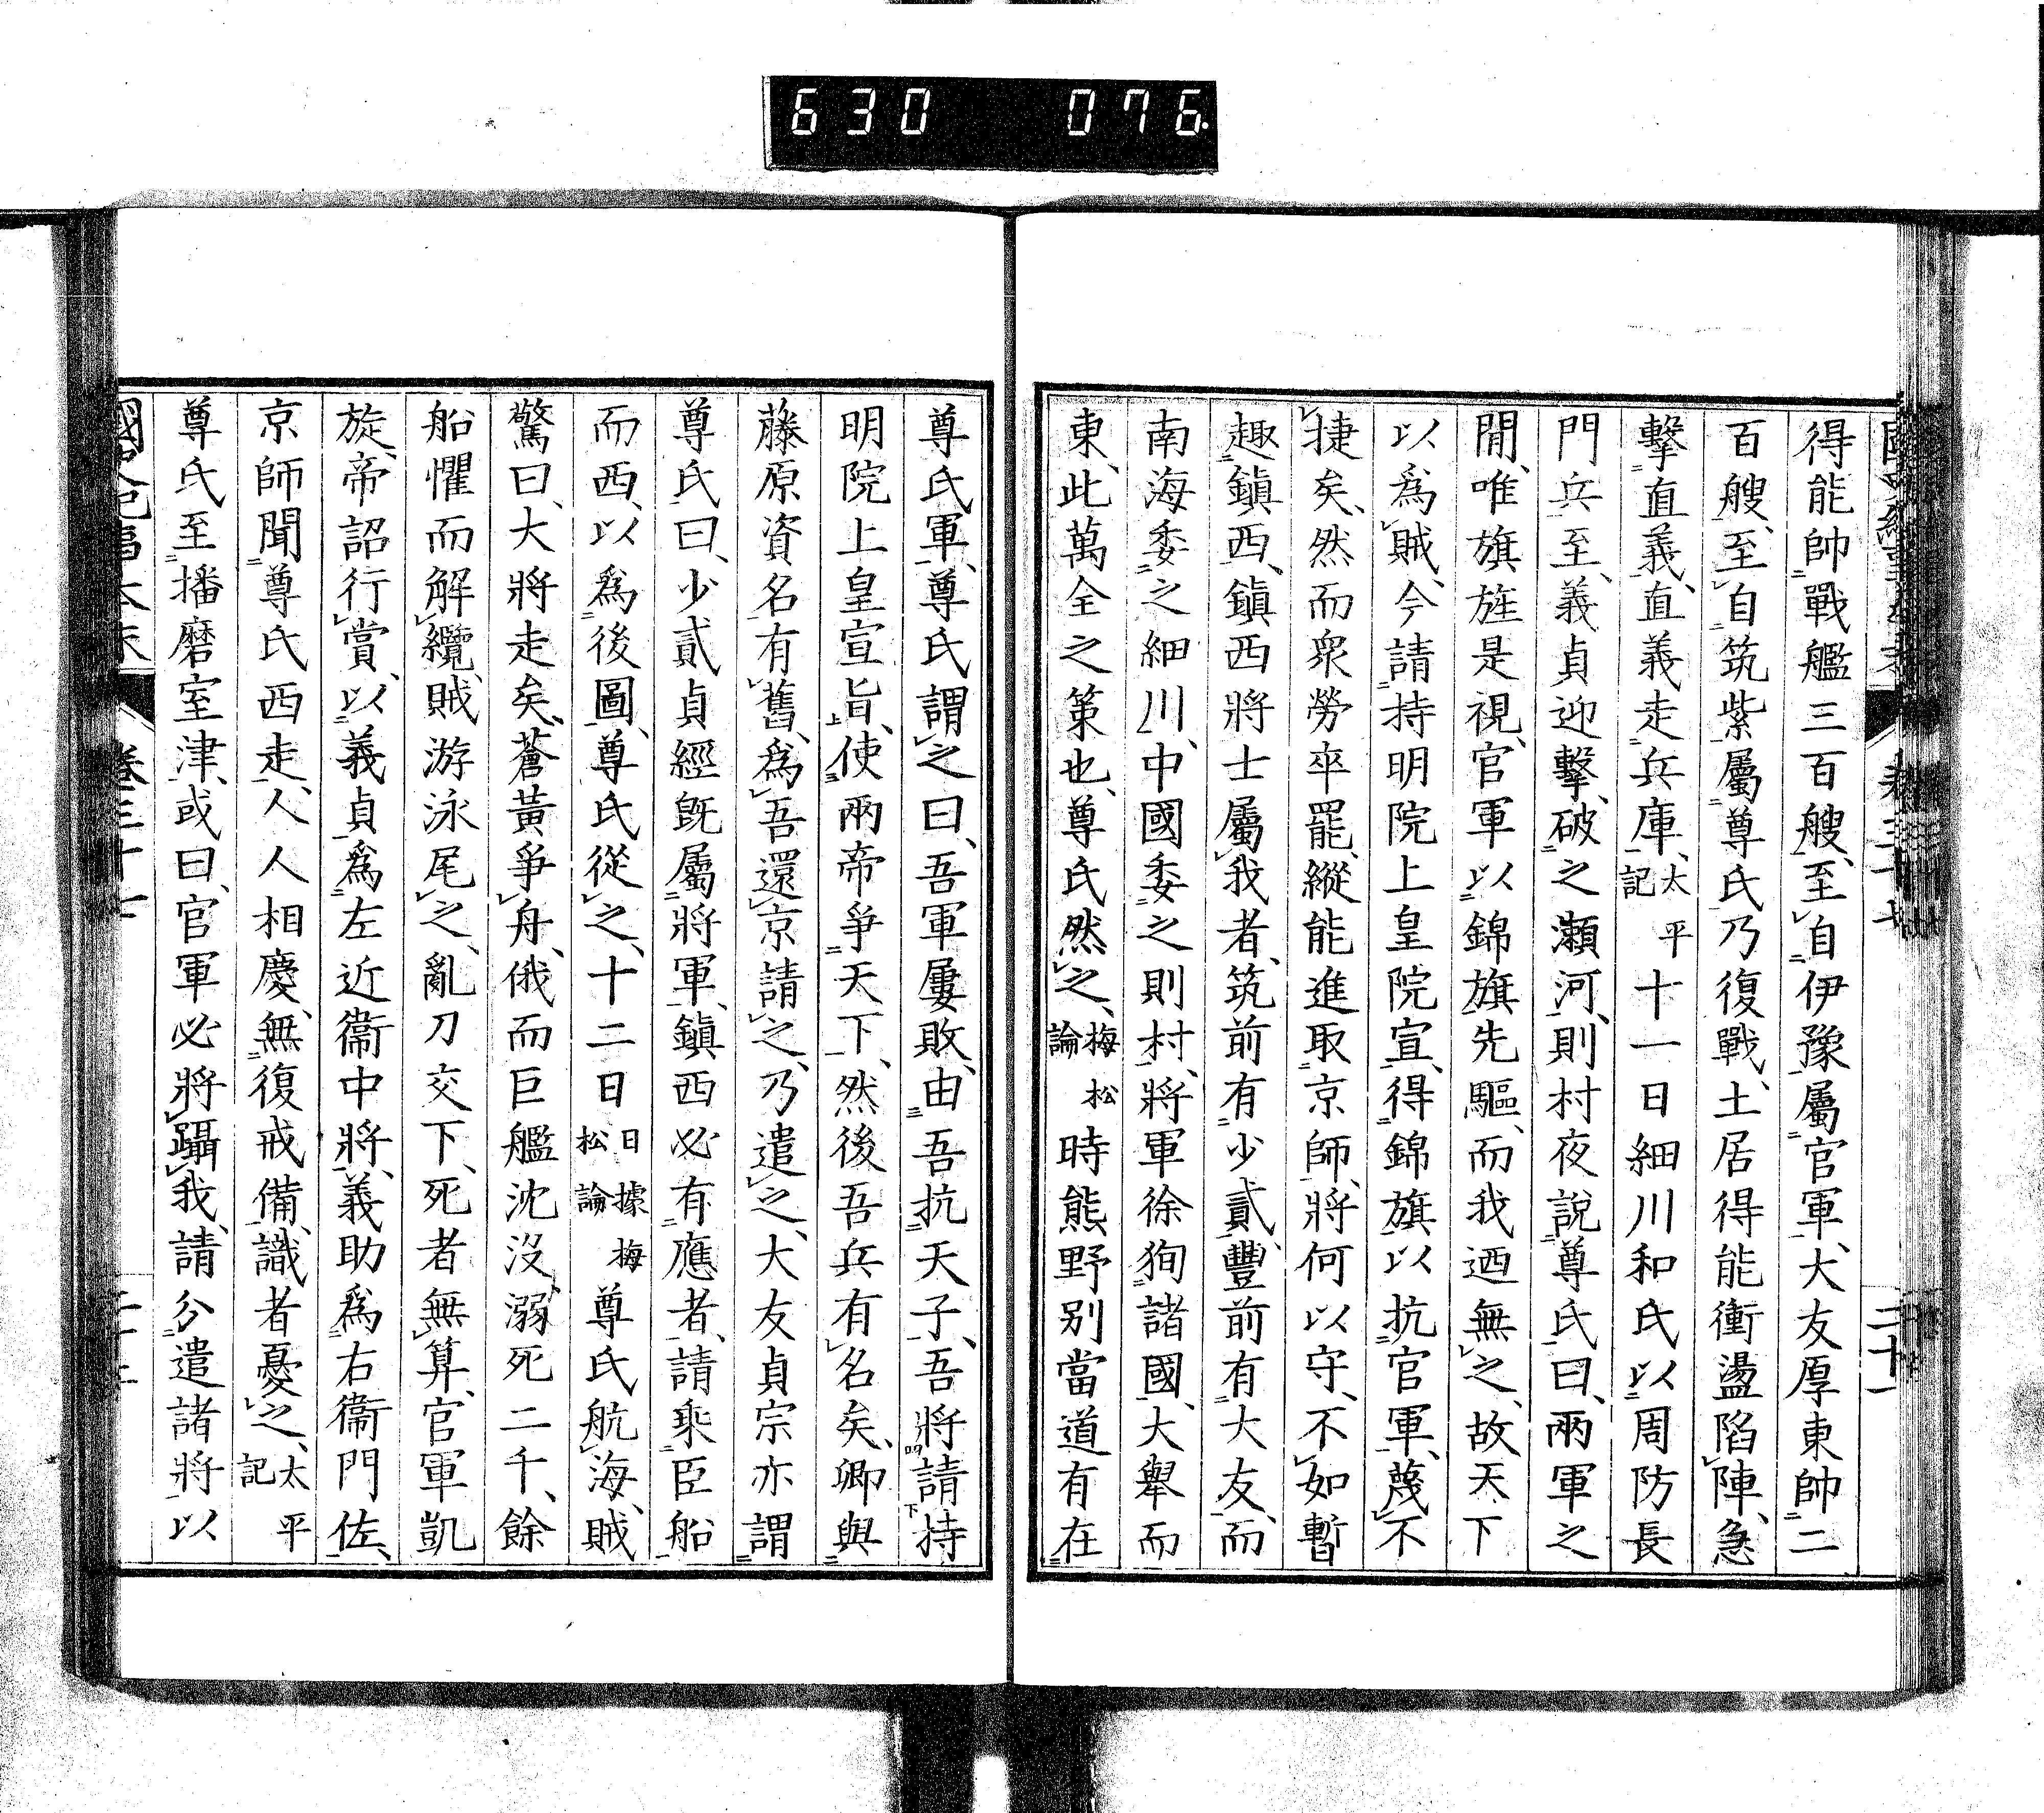 630 076
得能帥戰艦三百艘、至自伊豫屬官軍、大友厚東帥二
百艘、至自筑紫屬尊氏乃復戰、土居得能衝盪陷陣、急
擊直義、直義走兵庫、太平記十一日細川和氏以周防長
門兵至、義貞迎擊、破之瀬河、則村夜說尊氏曰、兩軍之
閒、唯旗旌是視、官軍以錦旗先驅、而我迺無之、故天下
以爲賊、今請持明院上皇院宣、得錦旗以抗官軍、蔑不
捷矣、然而衆勞卒罷、縱能進取京師、將何以守、不如暫
趣鎭西、鎭西將士屬我者、筑前有少貳、豐前有大友、而
南海委之細川、中國委之則村、將軍徐徇諸國、大舉而
東、此萬全之策也、尊氏然之、梅松論時熊野別當道有在
尊氏軍、尊氏謂之曰、吾軍屢敗、由吾抗天子、吾將請持
明院上皇宣旨、使兩帝爭天下、然後吾兵有名矣、卿與
藤原資名有舊、爲吾還京請之、乃遣之、大友貞宗亦謂
尊氏曰、少貳貞經旣屬將軍、鎭西必有應者、請乘臣船
而西、以爲後圖、尊氏從之、十二日日據梅松論尊氏航海、賊
驚曰、大將走矣、蒼黃爭舟、俄而巨艦沈沒、溺死二千、餘
船懼而解纜、賊游泳尾之、亂刀交下、死者無算、官軍凱
旋、帝詔行賞、以義貞爲左近衞中將、義助爲右衞門佐、
京師聞尊氏西走、人人相慶、無復戒備、識者憂之、太平記
尊氏至播磨室津、或曰、官軍必將躡我、請分遣諸將以
國史紀事本末 卷三十七